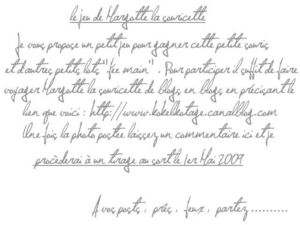 le jeu de Margotte la souricette
Je vous propose un petit jeu pour gagner cette petite souris
et d'autres petits lots "fée main". Pour participer il suffit de faire
voyager Margotte la souricette de blogs en blogs en précisant le
lien que voici : http://www.kokelikotage.canalblog.com
Une fois la photo postée laissez un commentaire ici et je
procéderai à un tirage au sort le 1er Mai 2009
A vos posts, prés, feux, partez..........